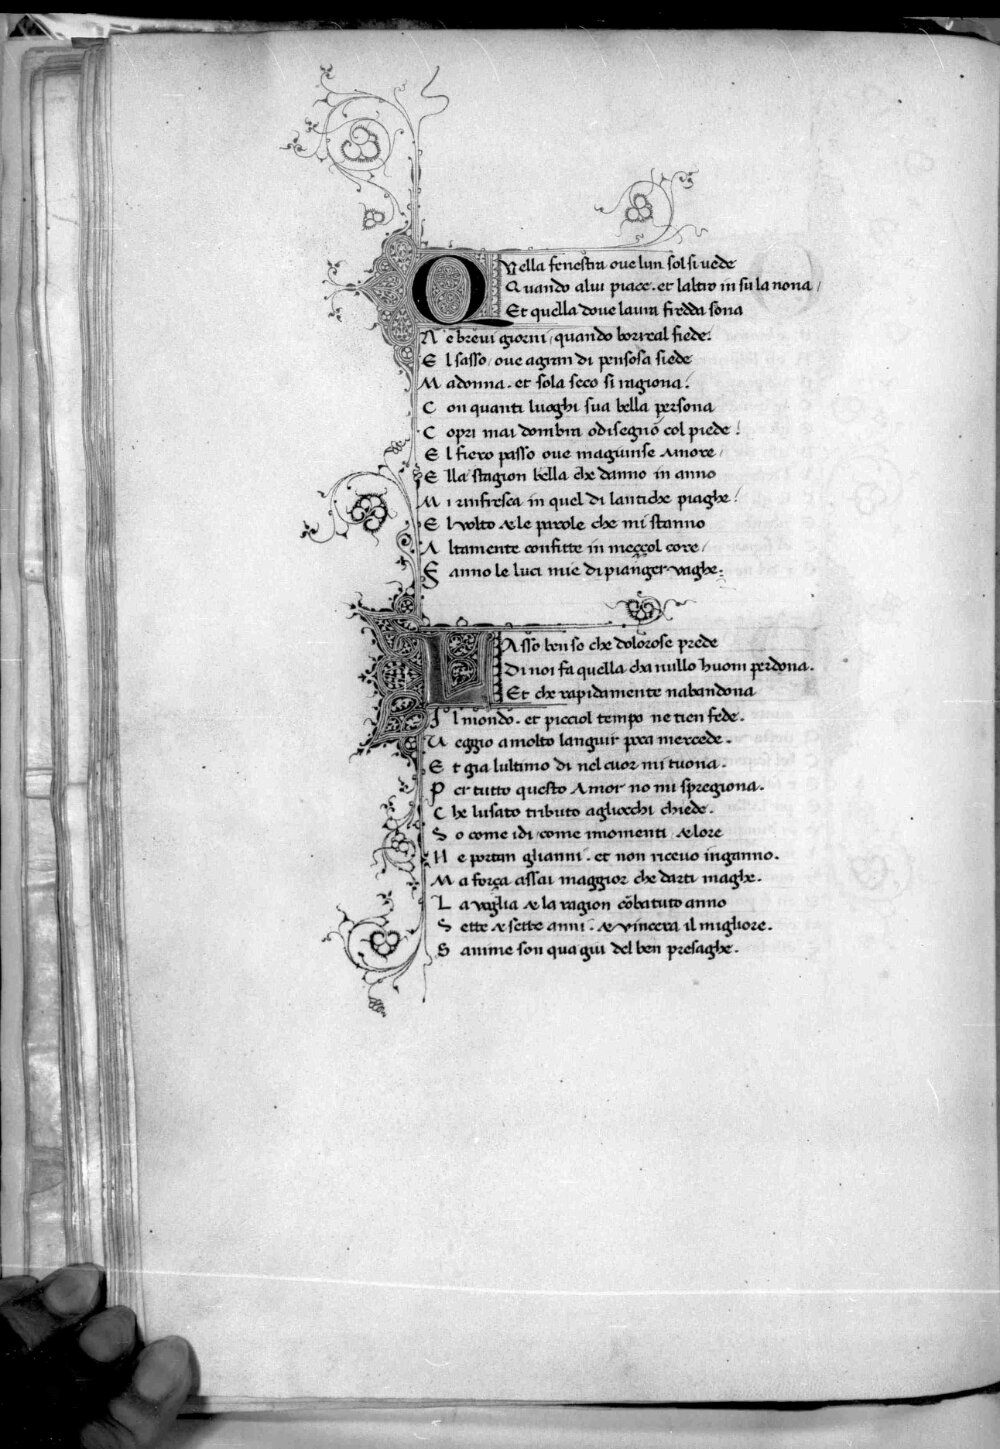 Quella fenestra oue lun sol si uede
Quando alui piace. et laltro in su la nona/
Et quella doue laura fredda sona
Ne breui giorni/quando borreal fiede:
El sasso/oue agran di pensosa siede
Madonna. et sola seco si ragiona:
Con quanti luoghi sua bella persona
Copri mai dombra odisegnō col piede:
El fiero passo oue magiunse Amore/
Ella stagion bella che danno in anno
Mi rinfresca in quel di lantiche piaghe:
El uolto & le parole che mi stanno
Altamente confitte in meççol core/
Fanno le luci mie di pianger uaghe:
Lasso ben so che dolorose prede
Di noi fa quella cha nullo huom perdona.
Et che rapidamente nabandona
Il mondo. et picciol tempo ne tien fede.
Veggio amolto languir poca mercede.
Et gia lultimo di nel cuor mi tuona.
Per tutto questo Amor no mi spregiona.
Che lusato tributo agliocchi chiede.
So come idi/come imomenti & lore
Ne portan glianni. et non riceuo inganno.
Ma força assai maggior che darti maghe.
La voglia & la ragion cōbatuto anno
Sette & sette anni. & vincera il migliore.
Sanime son qua giu del ben presaghe.